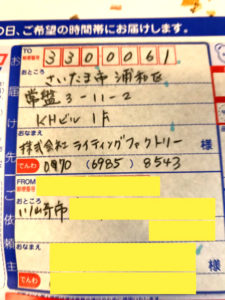 0日、ご希望の時間帯にお届けします。
TO
郵便番号 3300061
お届け先
おところ
さいたま市浦和区
常盤3-11-2
KHビル 1F
おなまえ
株式会社ライティングファクトリー 様
でんわ 0970 (6985) 8543
ご依頼主
FROM
郵便番号
おところ
川崎市
おなまえ
様
でんわ